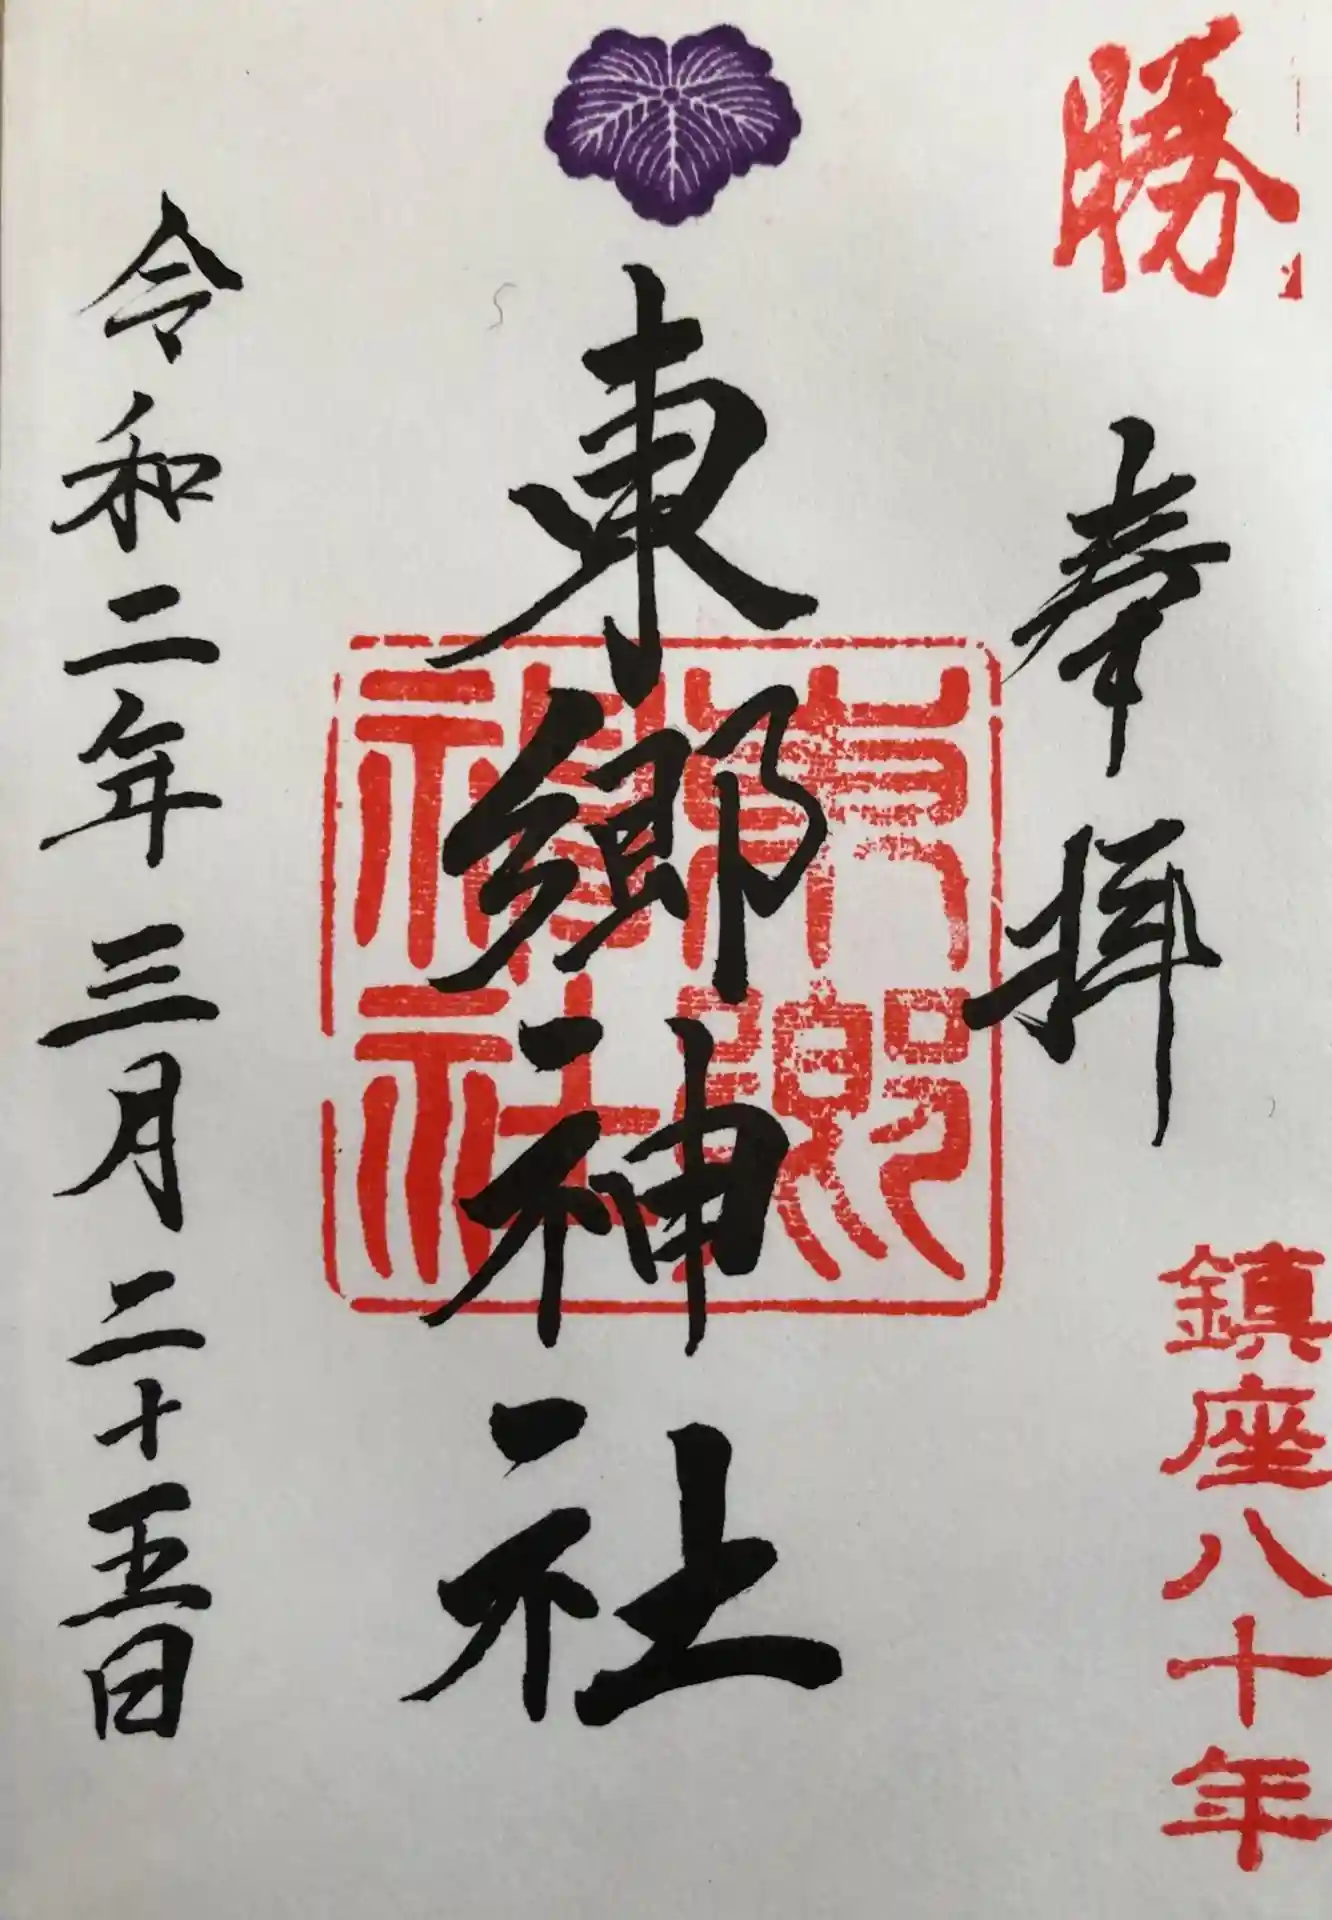 勝
奉拝
鎮座八十年
東郷神社
東郷神社
令和二年三月二十五日